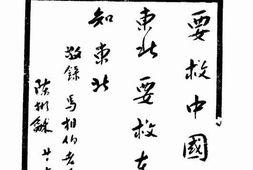 要救中國
東北要救
知東北
敬錄馬相伯老
陳彬龢